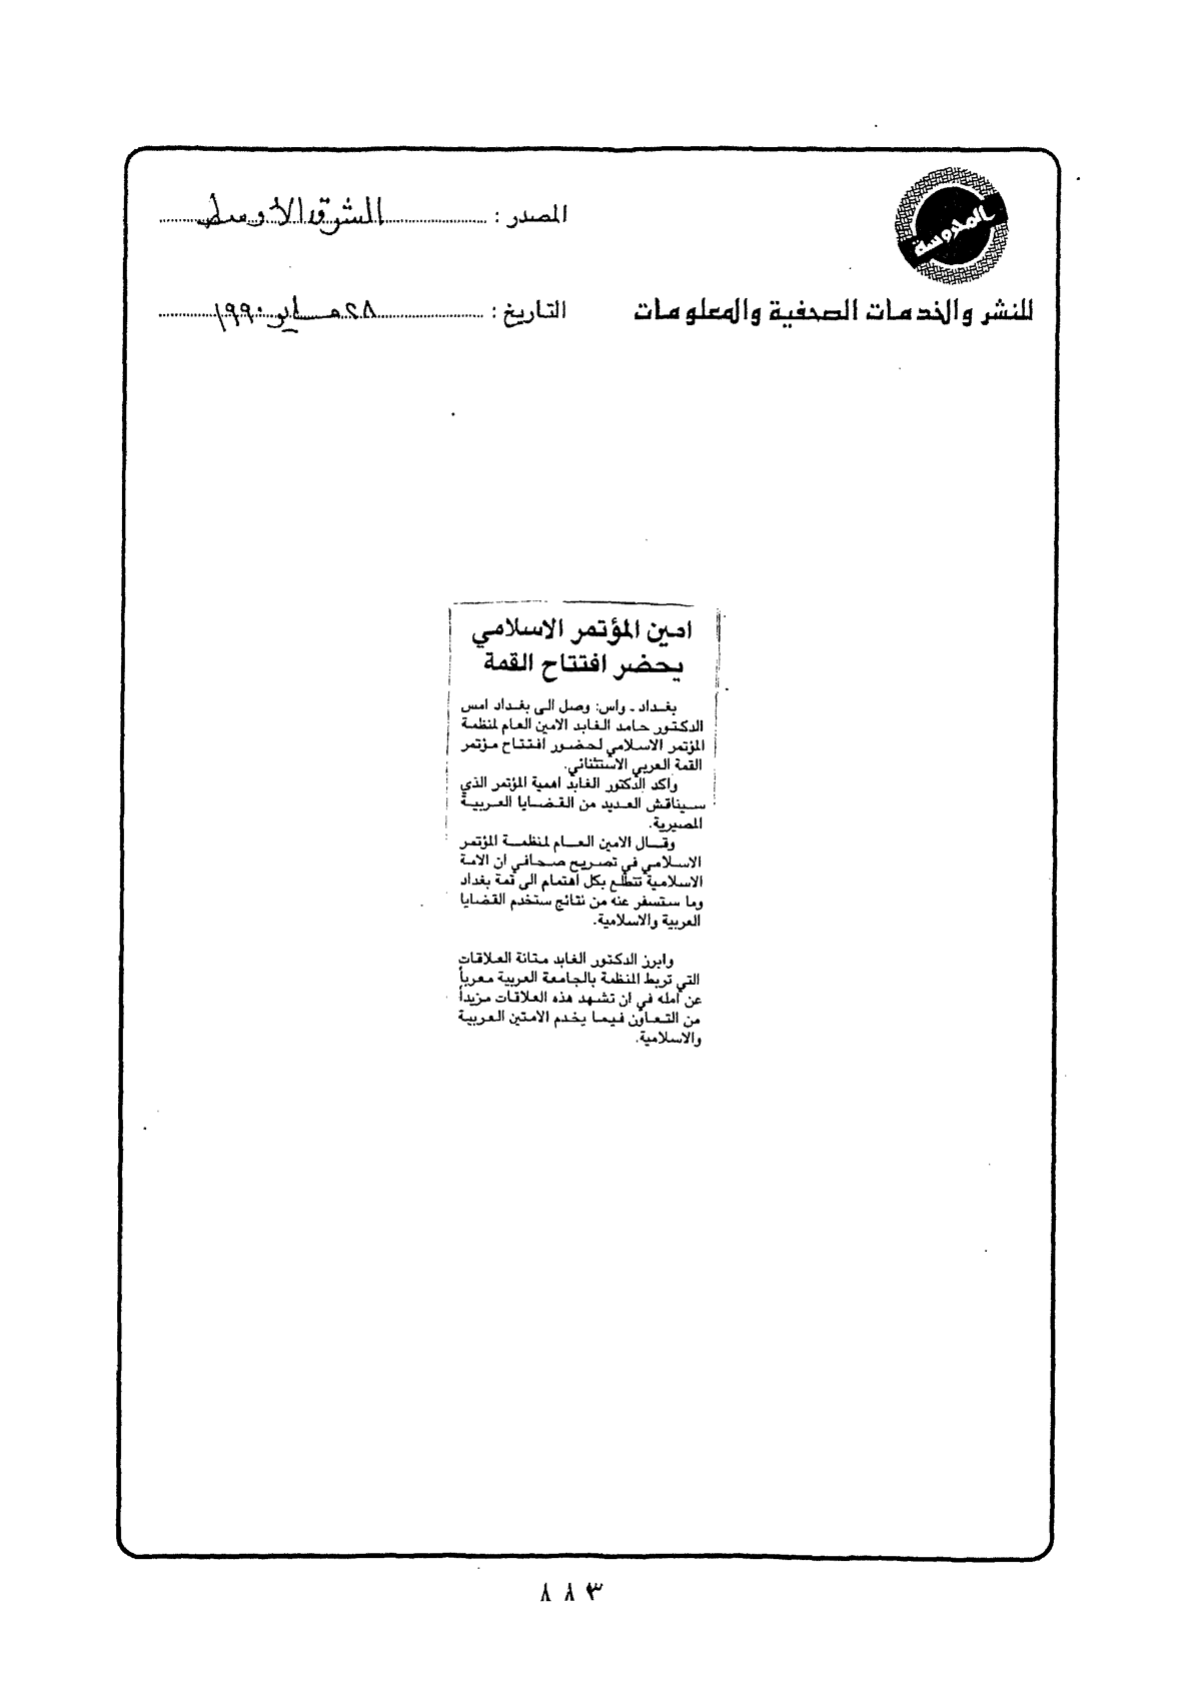 المحروسة
للنشر والخدمات الصحفية والمعلومات
المصدر : الشرق الأوسط
التاريخ : ٢٨ مايو ١٩٩٠
امين المؤتمر الاسلامي
يحضر افتتاح القمة
بغداد ـ واس: وصل الى بغداد امس
الدكتور حامد الغابد الامين العام لمنظمة
المؤتمر الاسلامي لحضور افتتاح مؤتمر
القمة العربي الاستثنائي.
واكد الدكتور الغابد اهمية المؤتمر الذي
سيناقش العديد من القضايا العربية
المصيرية.
وقال الامين العام لمنظمة المؤتمر
الاسلامي في تصريح صحافي ان الامة
الاسلامية تتطلع بكل اهتمام الى قمة بغداد
وما ستسفر عنه من نتائج ستخدم القضايا
العربية والاسلامية.
وابرز الدكتور الغابد متانة العلاقات
التي تربط المنظمة بالجامعة العربية معرباً
عن امله في ان تشهد هذه العلاقات مزيداً
من التعاون فيما يخدم الامتين العربية
والاسلامية.
٨٨٣